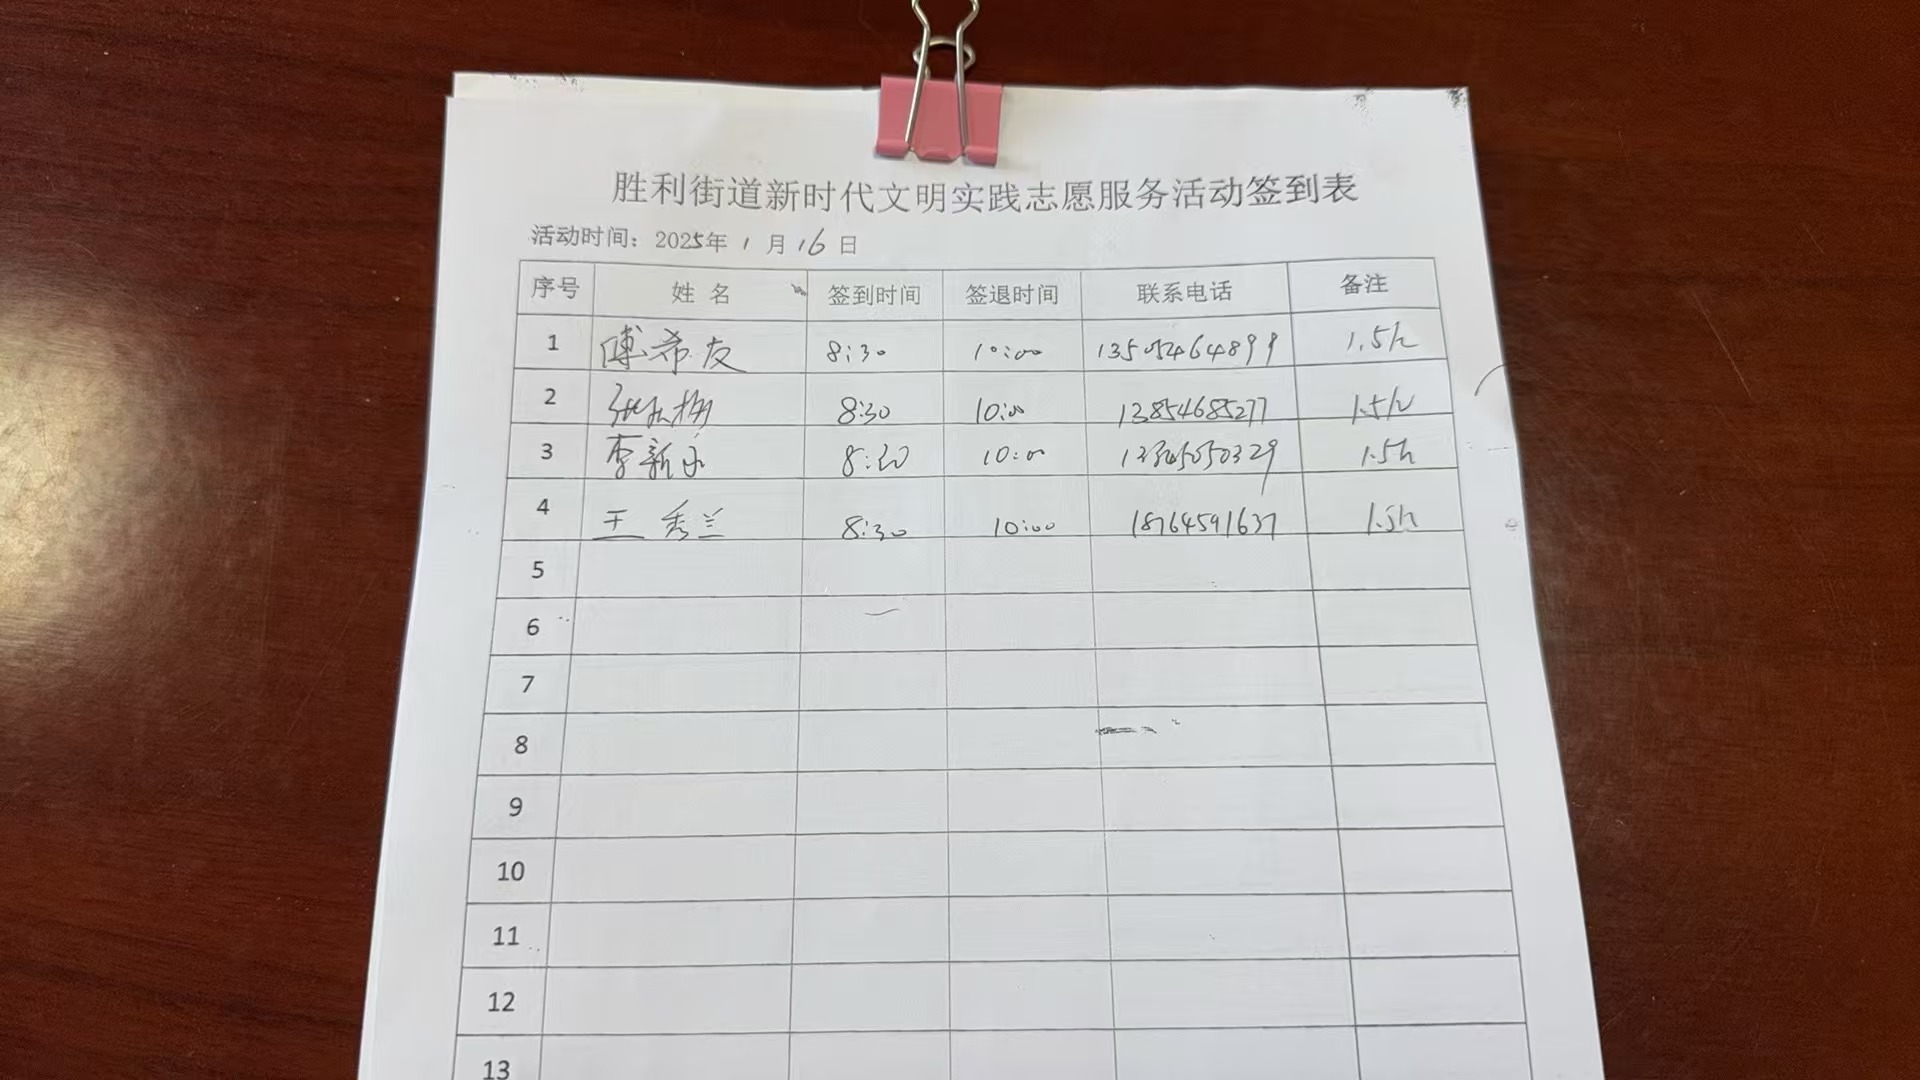 胜利街道新时代文明实践志愿服务活动签到表
活动时间：2025年 1 月 16 日
序号 姓 名 签到时间 签退时间 联系电话 备注
1 傅希友 8:30 10:00 13505464899 1.5h
2 8:30 10:00 13854685277 1.5h
3 李新 8:30 10:00 1.5h
4 王秀兰 8:30 10:00 18764591637 1.5h
5
6
7
8
9
10
11
12
13